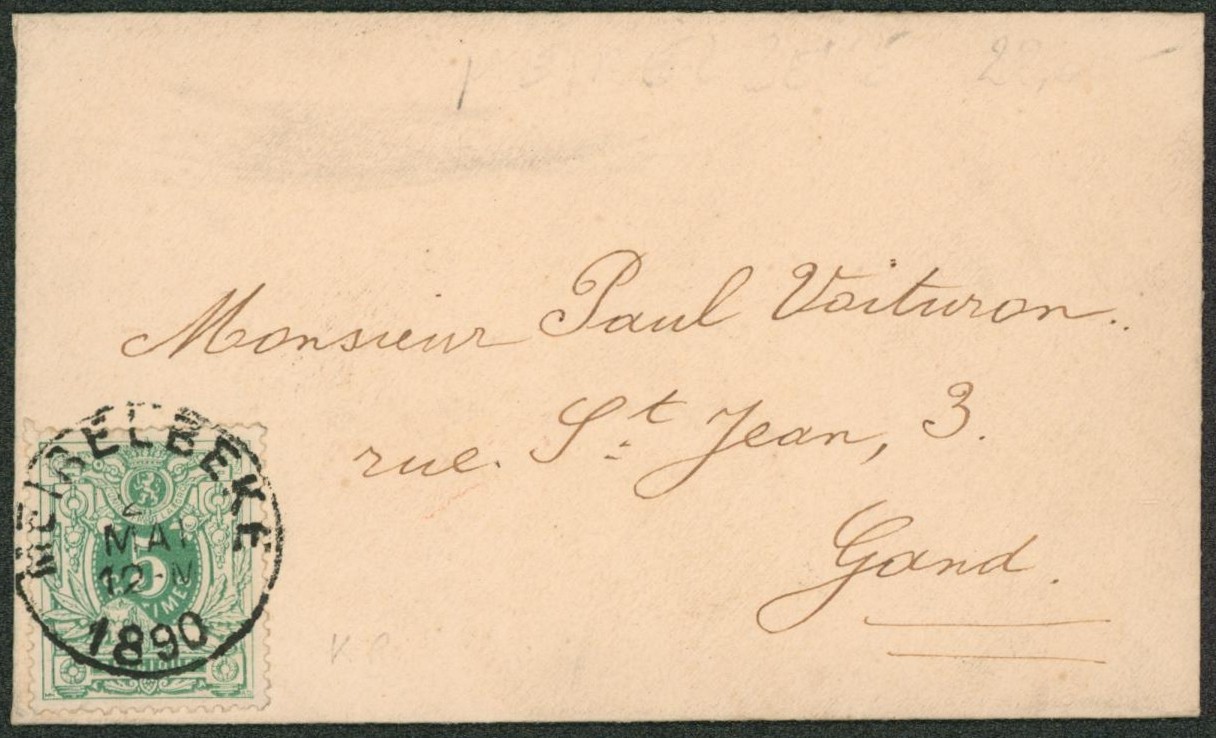 Monsieur Paul Voituron.
rue. St Jean, 3.
Gand.
MEIRELBEKE
2
MAI
12-M
1890
5